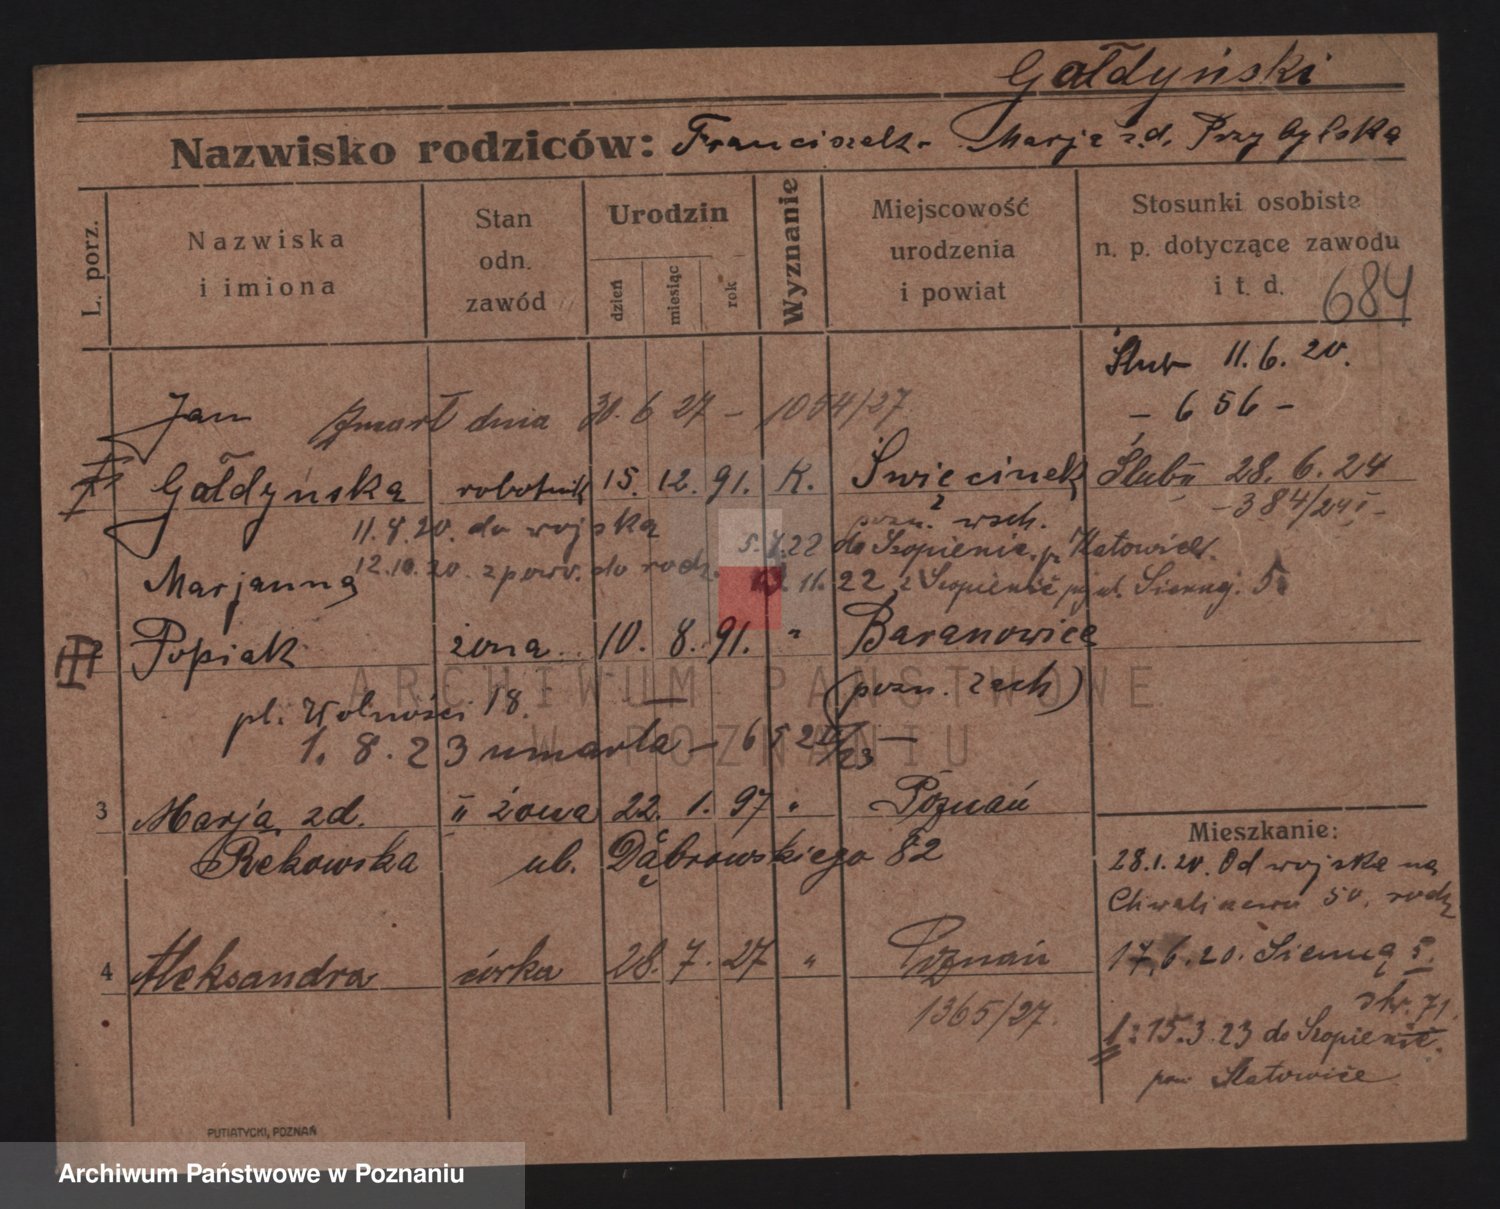 Gałdyński
Nazwisko rodziców: Franciszek. Marja z d. Przybylska
L. porz.
Nazwiska
i imiona
Stan
odn.
zawód
Urodzin
dzień
miesiąc
rok
Wyznanie
Miejscowość
urodzenia
i powiat
Stosunki osobiste
n. p. dotyczące zawodu
i t. d.
684
Ślub 11. 6. 20.
– 656 –
Jan zmarł dnia 30. 6 27 – 1054/27
Gałdyńska robotnik 15. 12. 91. K. Święcinek Ślub II 28. 6. 24
pozn. wsch. – 384/24 –
11. 8. 20. do wojska
5. 7. 22 do Szopienic, p. Katowice.
12. 10. 20. z pow. do rodz.
Marjanna
11. 22 z Szopienic ul. Sienną. 5.
2 Popiak żona 10. 8. 91. " Baranowice
(pozn. Zach)
pl. Wolności 18.
1. 8. 23 umarła –
3 Marja zd. II żona 22. 1. 97 " Poznań
Rekowska ul. Dąbrowskiego 82
Mieszkanie:
28. 1. 20. Od wojska na
Chwaliszewo 50. rodz
17. 6. 20. Sienną 5.
4 Aleksandra córka 28. 7. 27 " Poznań
1365/27.
skr. 71.
1: 15. 3. 23 do Szopienic.
pow Katowice
PUTIATYCKI, POZNAŃ
ARCHIWUM PAŃSTWOWE
W POZNANIU
Archiwum Państwowe w Poznaniu